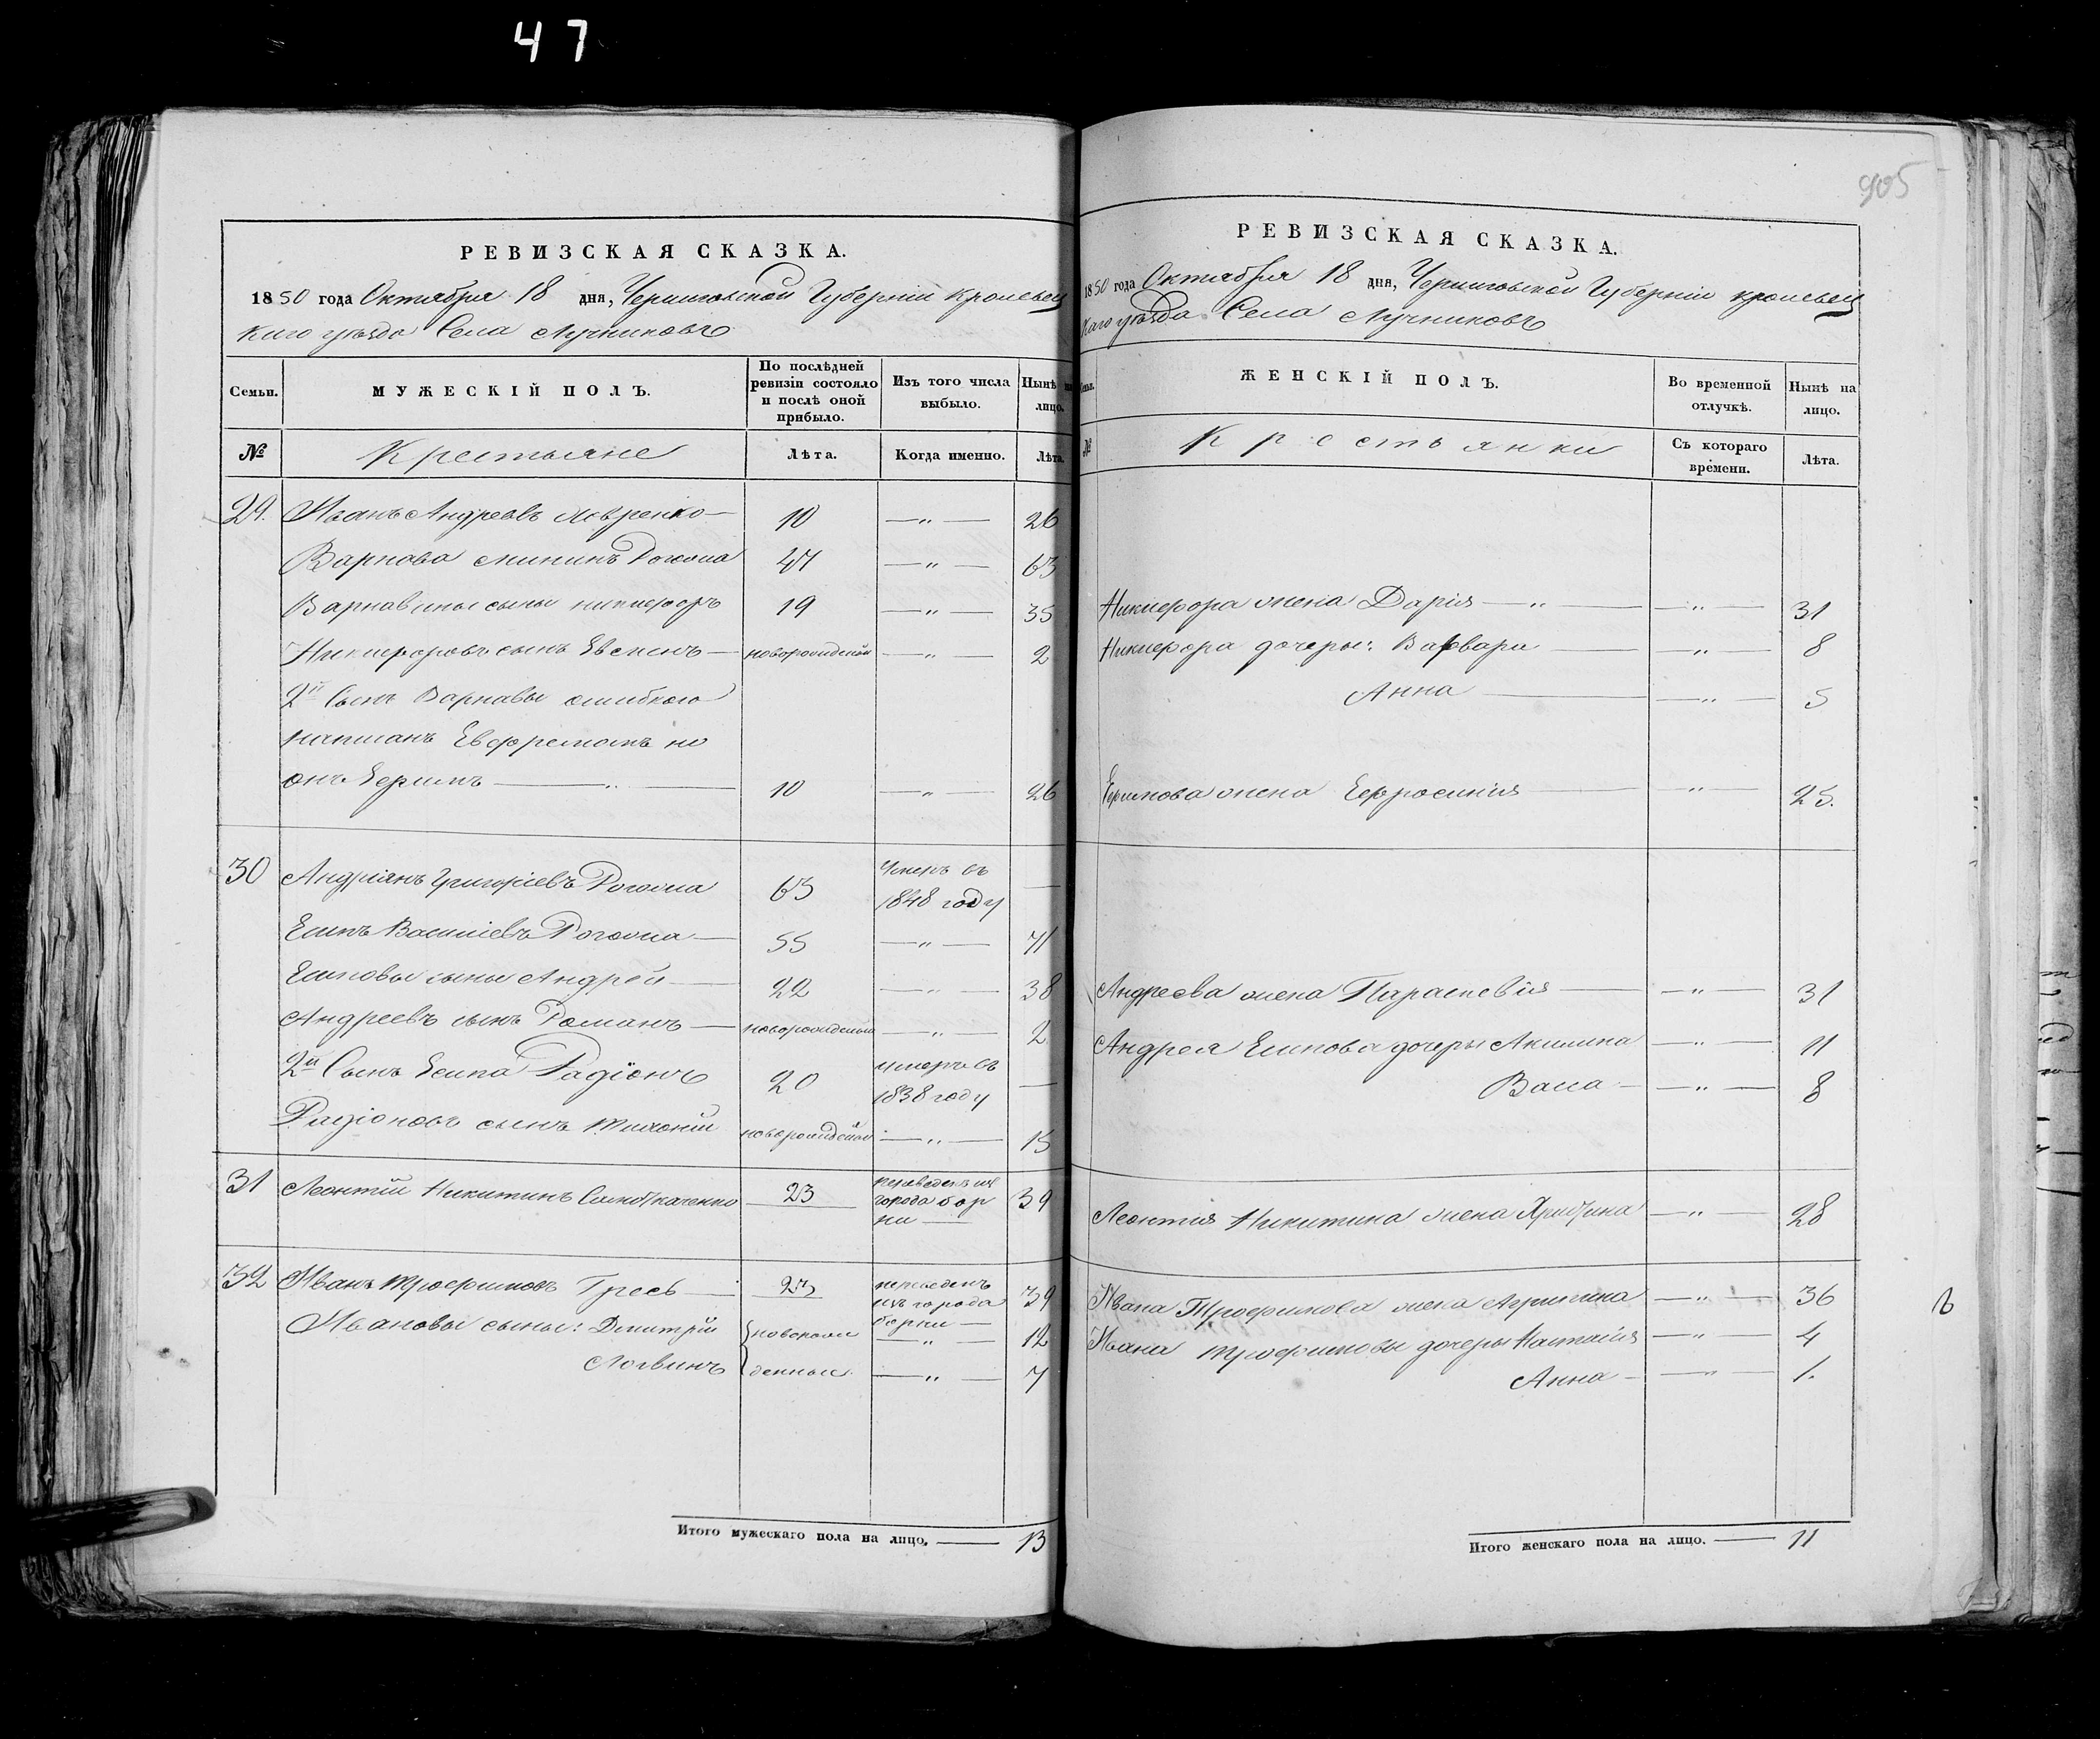 47
905
РЕВИЗСКАЯ СКАЗКА.
1850 года Октября 18 дня, Черниговской Губерніи Кролевец
каго уѣзда Села Лучниковъ
Семьи. МУЖЕСКІЙ ПОЛЪ. По послѣдней ревизіи состояло и послѣ оной прибыло. Изъ того числа выбыло. Нынѣ на лицо.
№ Крестьяне Лѣта. Когда именно. Лѣта.
29. Иванъ Андреевъ 10 — „ — 26
Варнава Рогожа 47 — „ — 63
Варнавины сыны Никифоръ 19 — „ — 35
Никифоровъ сынъ новорожденый — „ — 2
2й Сынъ Варнавы ошибкою
написанъ Ефремомъ но
онъ Ефимъ — „ — 10 — „ — 26
30 Андріянъ Григоріевъ Рогожа 63 Умеръ въ 1848 году —
Есипъ Василіевъ Рогожа — 55 — „ — 71
Есиповы сыны Андрей — 22 — „ — 38
Андреевъ сынъ Романъ — новорожденый — „ — 2
2й Сынъ Есипа Радіонъ 20 умеръ въ 1838 году —
Радіоновъ сынъ новорожденый — „ — 15
31 Леонтій Никитинъ 23 переведенъ изъ города бор ны — 39
32 Иванъ Трофимовъ — 23 переведенъ изъ города борны — 39
Ивановы сыны: Дмитрій новорож — „ — 12
Логвинъ денные — „ — 7
Итого мужескаго пола на лицо. — 13
РЕВИЗСКАЯ СКАЗКА.
1850 года Октября 18 дня, Черниговской Губерніи кролевец
каго уѣзда Села Лучниковъ
Семьи. ЖЕНСКІЙ ПОЛЪ. Во временной отлучкѣ. Нынѣ на лицо.
№ Крестьянки Съ котораго времени. Лѣта.
Никифора жена Дарія — „ — — „ — 31
Никифора дочеры: Варвара — — „ — 8
Анна — — „ — 5
Ефимова жена Ефросинія — „ — 25.
Андреева жена Параскевія — — „ — 31
Андрея Есипова дочеры Акилина — „ — 11
Васа — — „ — 8
Леонтия Никитина жена Христина — „ — 28
Ивана Трофимова жена Агрипина — „ — 36
Ивана Трофимовы дочеры Настасія — „ — 4
Анна — — „ — 1.
Итого женскаго пола на лицо. — 11